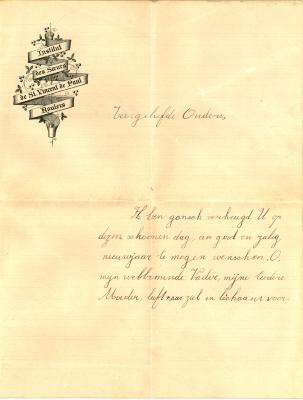 Institut
des Sœurs
de St. Vincent de Paul
Roulers
Veergeliefde Ouders,
Ik ben gansch verheugd U op
dezen schoonen dag, een goed en zalig
nieuwjaar te mogen wenschen. O,
mijn welbeminde Vader, mijne teedere
Moeder, leeft naar ziel en lichaam voor-